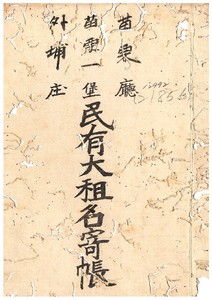 苗栗廳
苗栗一堡
外埔庄
民有大租名寄帳